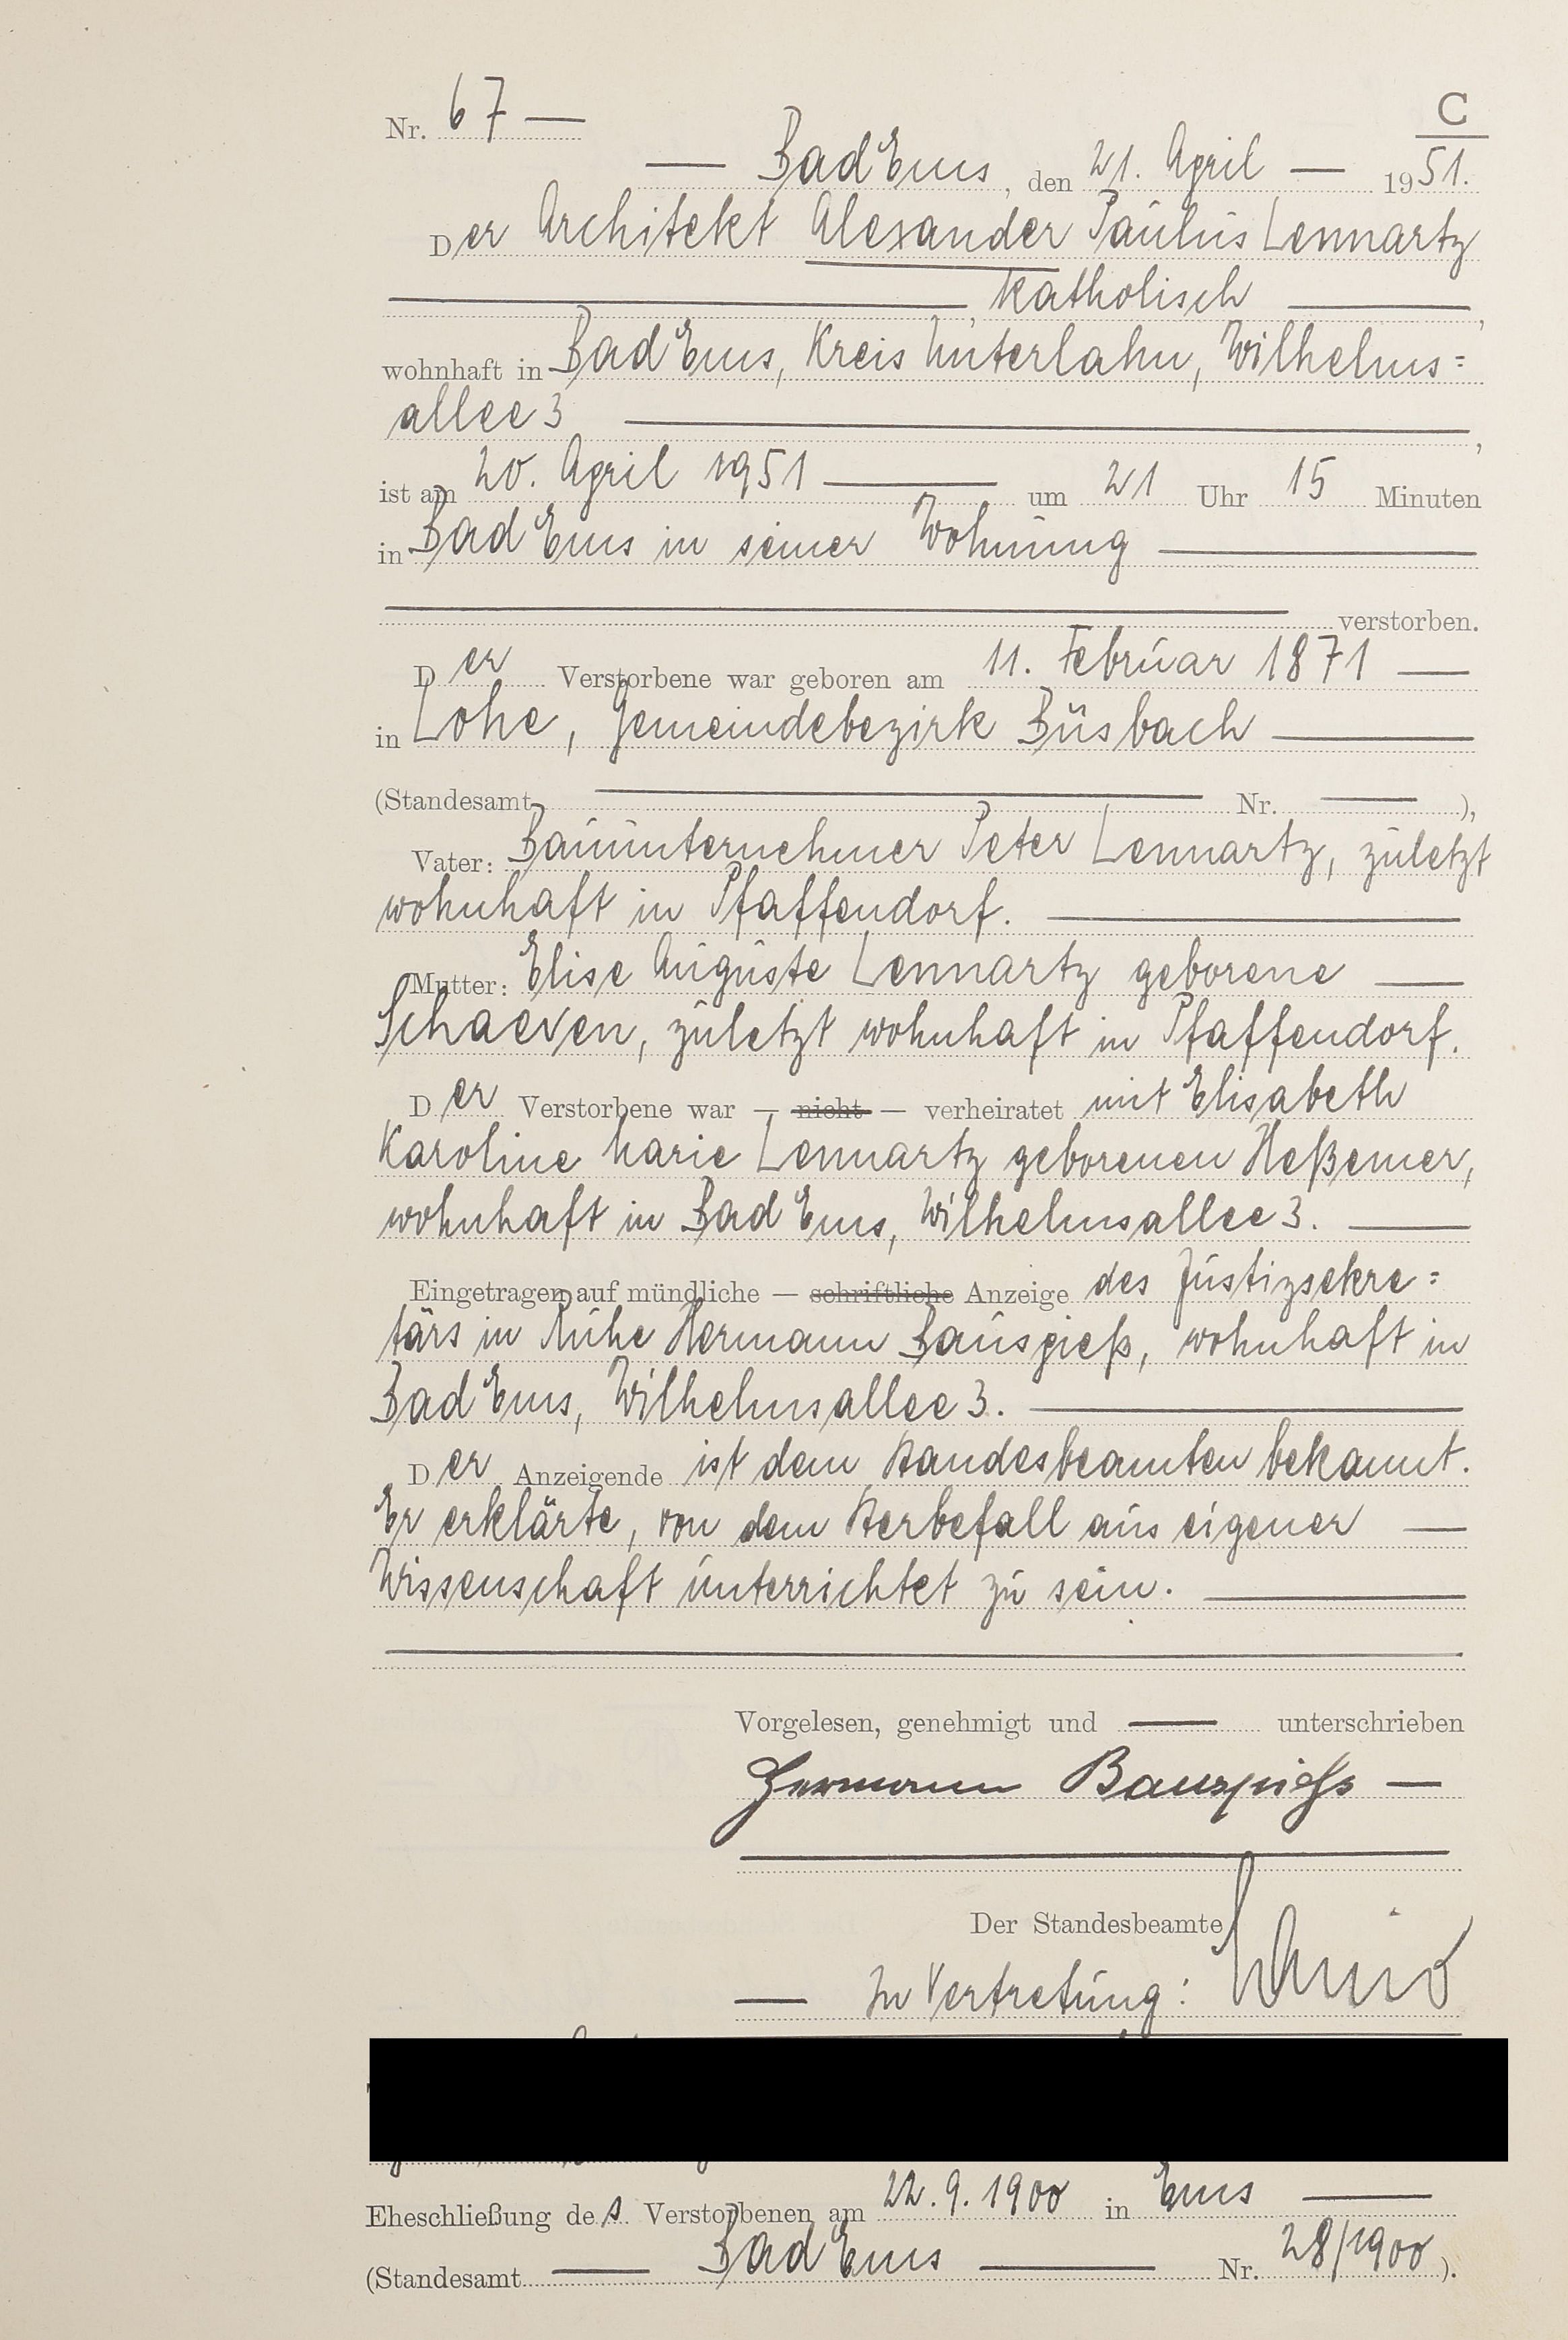 Nr. 67 —
C
— Bad Ems, den 21. April — 1951.
Der Architekt Alexander Paulus Lennartz
—, katholisch —,
wohnhaft in Bad Ems, Kreis Unterlahn, Wilhelms=
allee 3 —,
ist am 20. April 1951 — um 21 Uhr 15 Minuten
in Bad Ems in seiner Wohnung —
— verstorben.
Der Verstorbene war geboren am 11. Februar 1871 —
in Lohe, Gemeindebezirk Büsbach —
(Standesamt — Nr. —),
Vater: Bauunternehmer Peter Lennartz, zuletzt
wohnhaft in Pfaffendorf. —
Mutter: Elise Auguste Lennartz geborene —
Schaeven, zuletzt wohnhaft in Pfaffendorf.
Der Verstorbene war — nicht — verheiratet mit Elisabeth
Karoline Marie Lennartz geborenen Heßemer,
wohnhaft in Bad Ems, Wilhelmsallee 3. —
Eingetragen auf mündliche — schriftliche Anzeige des Justizsekre=
tärs in Ruhe Hermann Bauspieß, wohnhaft in
Bad Ems, Wilhelmsallee 3. —
Der Anzeigende ist dem Standesbeamten bekannt.
Er erklärte, von dem Sterbefall aus eigener —
Wissenschaft unterrichtet zu sein. —
Vorgelesen, genehmigt und — unterschrieben
Hermann Bauspieß —
Der Standesbeamte
— In Vertretung:
Eheschließung des Verstorbenen am 22.9.1900 in Ems —
(Standesamt — Bad Ems — Nr. 28/1900).